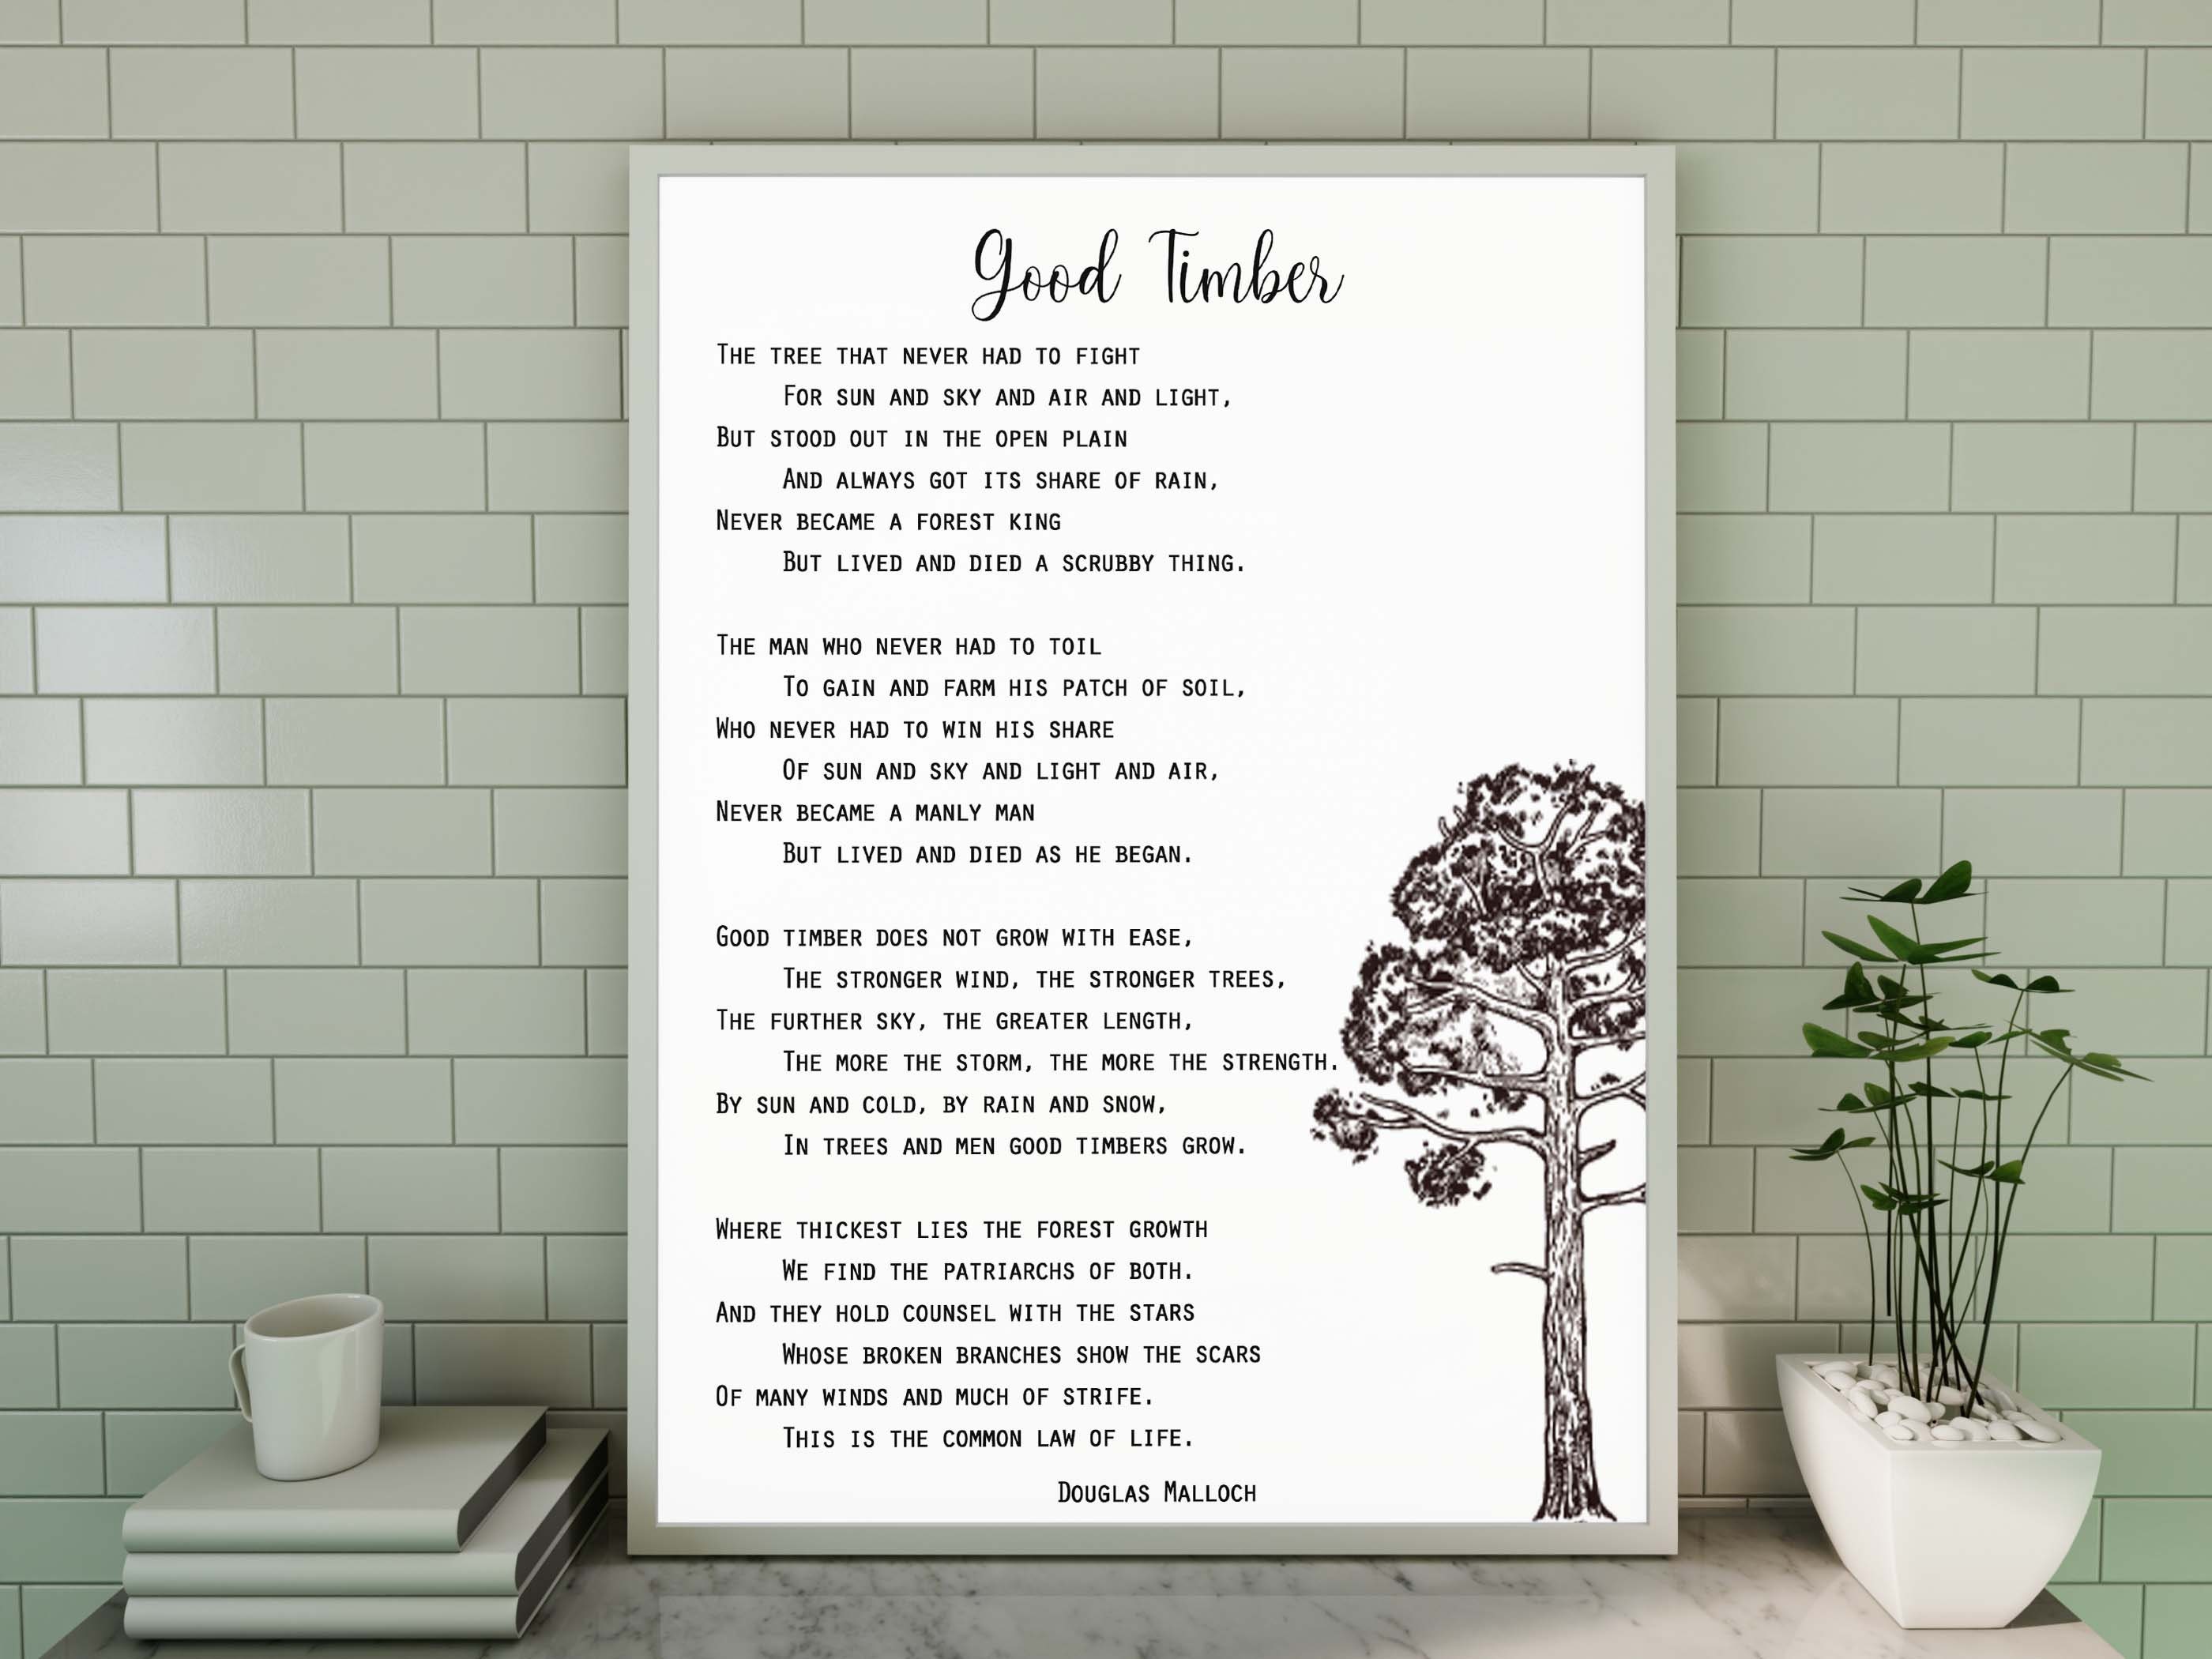 Good Timber
The tree that never had to fight
For sun and sky and air and light,
But stood out in the open plain
And always got its share of rain,
Never became a forest king
But lived and died a scrubby thing.
The man who never had to toil
To gain and farm his patch of soil,
Who never had to win his share
Of sun and sky and light and air,
Never became a manly man
But lived and died as he began.
Good timber does not grow with ease,
The stronger wind, the stronger trees,
The further sky, the greater length,
The more the storm, the more the strength.
By sun and cold, by rain and snow,
In trees and men good timbers grow.
Where thickest lies the forest growth
We find the patriarchs of both.
And they hold counsel with the stars
Whose broken branches show the scars
Of many winds and much of strife.
This is the common law of life.
Douglas Malloch